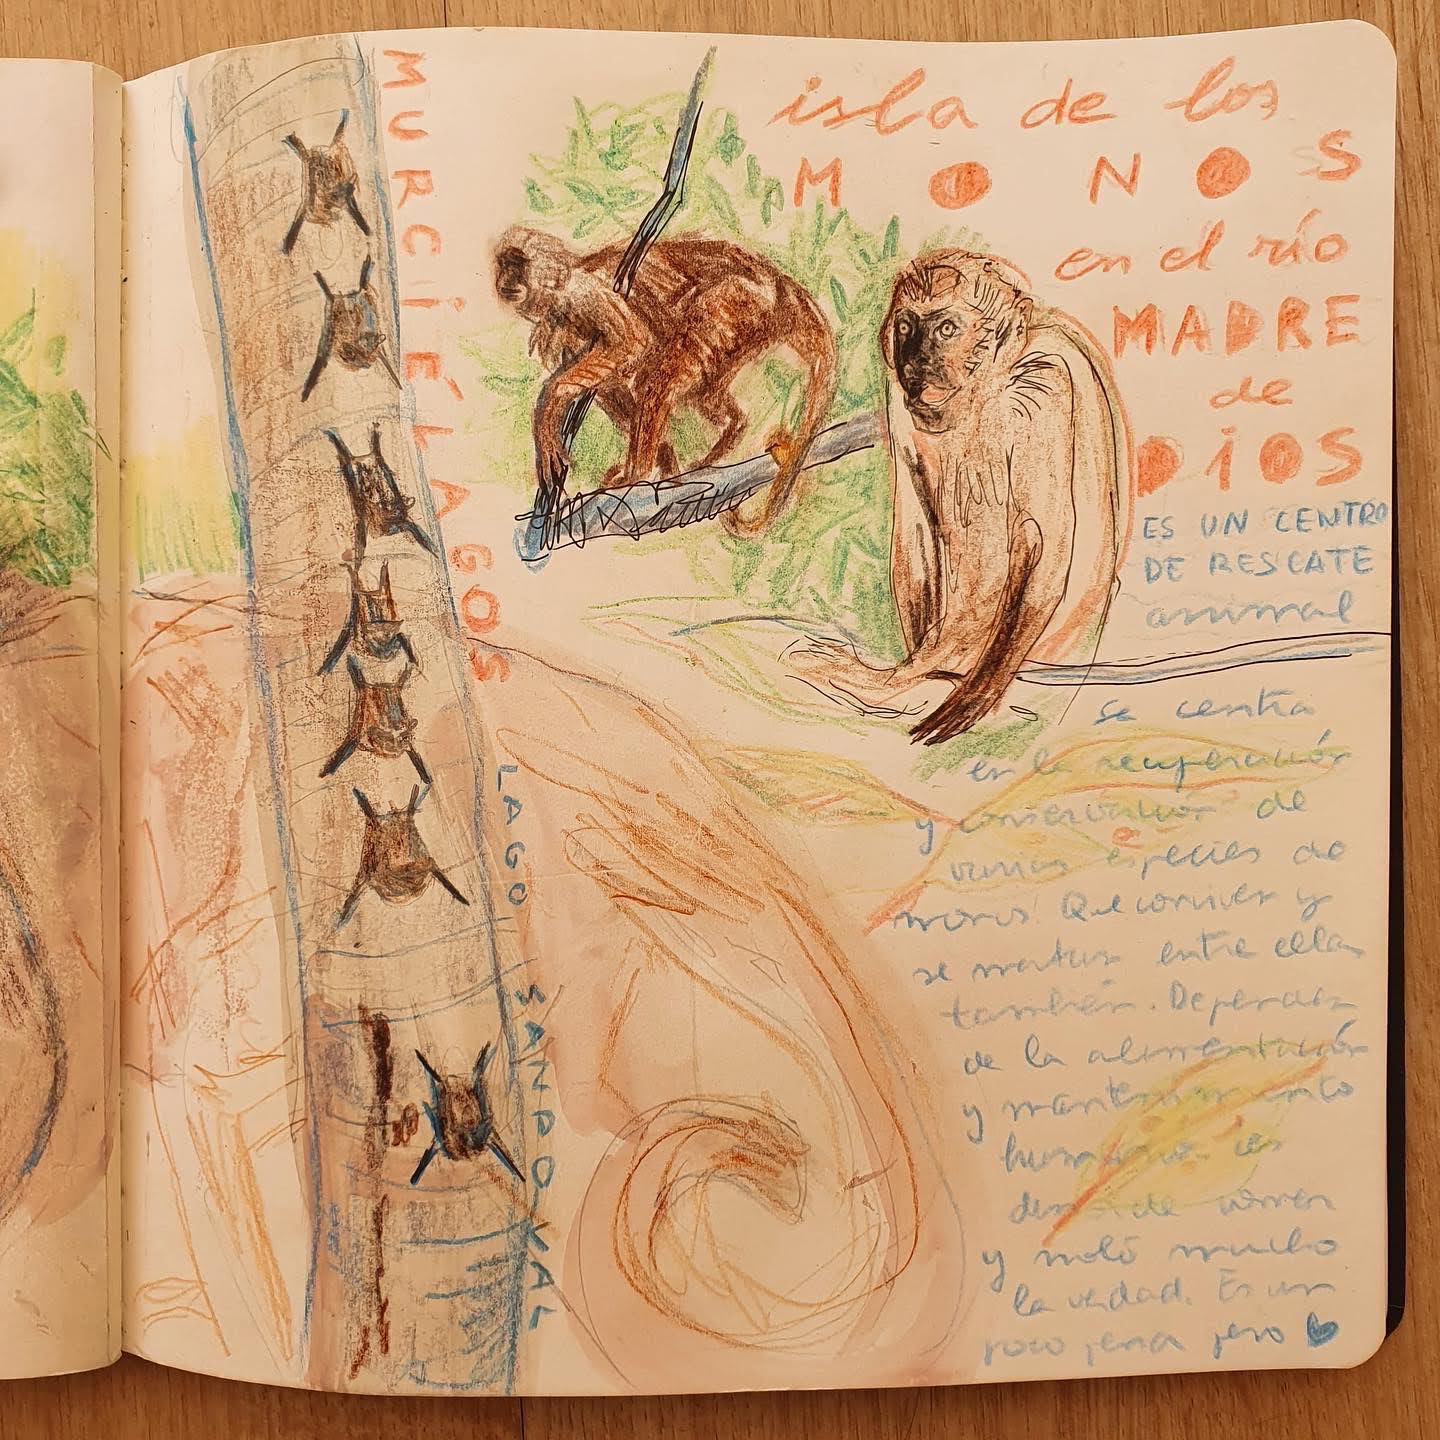 MURCIÉLAGOS
LAGO SANDOVAL
isla de los
MONOS
en el río
MADRE
de
DIOS
ES UN CENTRO
DE RESCATE
animal
se centra
en la recuperación
y conservación de
varias especies de
monos. Que conviven y
se matan entre ellas
también. Dependen
de la alimentación
y mantenimiento
humano es
donde comen
y moló mucho
la verdad. Es un
poco pena pero